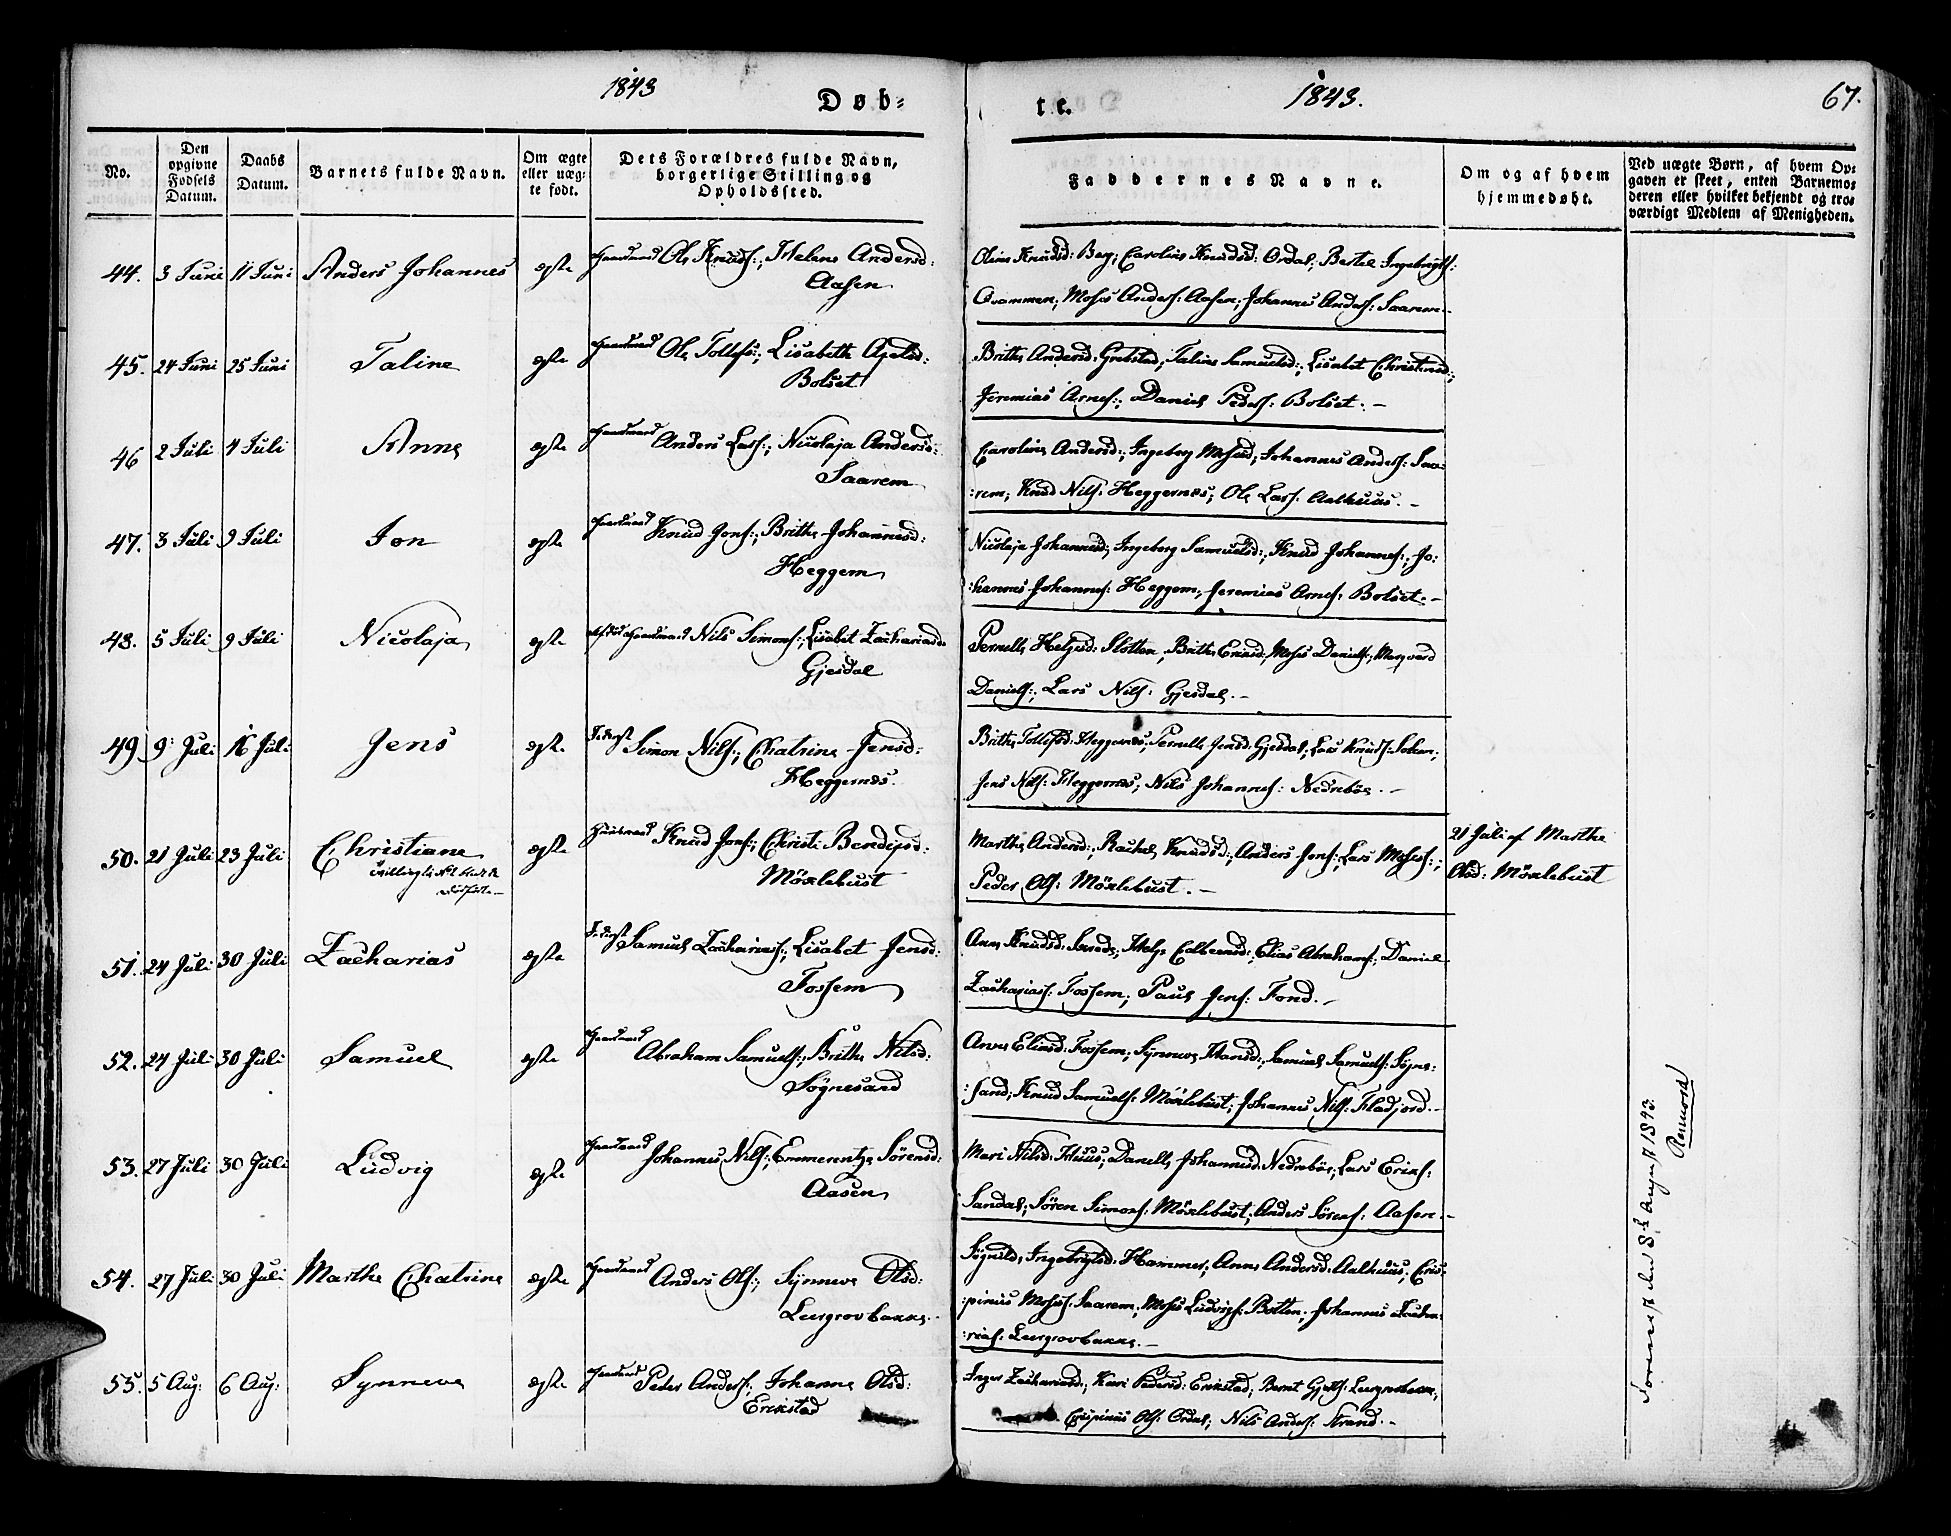 1843
Døb-
te.
1843.
67.
No.
Den opgivne Fødsels Datum.
Daabs Datum.
Barnets fulde Navn.
Om ægte eller uægte født.
Dets Forældres fulde Navn, borgerlige Stilling og Opholdssted.
Faddernes Navne.
Om og af hvem hjemmedøbt.
Ved uægte Børn, af hvem Opgaven er skeet, enten Barnemoderen eller hvilket bekjendt og troværdigt Medlem af Menigheden.
44. 3 Juni 11 Juni Anders Johannes ægte Gaardmand Ole Knuds:, Helene Andersd:
Aasen
Oline Knudsd: Berg; Caroline Knudsd: Ordal; Bertel Ingebrigts:
Qvammen; Moses Anders: Aasen; Johannes Anders: Saarem.
45. 24 Juni 25 Juni Taline ægte Gaardmand Ole Tollefs:; Lisabeth Axelsd:
Bolset
Brithe Andersd: Grebstad; Taline Samuelsd:; Lisabet Christensd:;
Jeremias Arnes:; Daniel Peders: Bolset. -
46 2 Juli 4 Juli Anne ægte Gaardmand Anders Lars:; Nicolaja Andersd:
Saarem
Caroline Andersd:; Ingeborg Mosesd; Johannes Anders: Saa-
:rem; Knud Nils: Heggernæs; Ole Lars: Aalhuus. -
47. 3 Juli 9 Juli Jon ægte Gaardmand Knud Jons:; Brithe Johannesd:
Heggem
Nicolaja Johannesd; Ingeborg Samuelsd:; Knud Johannes:; Jo:
:hannes Johannes: Heggem; Jeremias Arnes: Bolset. -
48. 5 Juli 9 Juli Nicolaja ægte Gaardmand Nils Simons:; Lisabet Zachariasd:
Gjesdal
Pernelle Helgesd: Slotten; Brithe Ericsd:; Moses Daniels:; Marqvard
Daniels:; Lars Nils: Gjesdal. -
49 9: Juli 16 Juli Jens ægte Simon Nils:; Chatrine Jensd:
Heggernæs.
Brithe Tollefsd: Heggernæs; Pernelle Jensd: Gjesdal; Lars Knuds:
Jens Nils: Heggernæs; Nils Johannes: Nedrebøe. -
50. 21 Juli 23 Juli Christiane ægte Huusmand Knud Jons:; Christi Bendixsd:
Möxlebust
Marthe Andersd:; Rachel Knudsd:; Anders Jens:; Lars Moses:;
Peder Ols: Möxlebust. -
21 Juli af Marthe
Olsd: Möxlebust
51. 24 Juli 30 Juli Zacharias ægte Samuel Zacharias:; Lisabet Jensd:
Fossem
Anne Knudsd: Helge Colbeensd:; Elias Abrahams:; Daniel
Zacharias: Fossem; Paul Jens: Fond. -
52. 24 Juli 30 Juli Samuel ægte Gaardmand Abraham Samuels:; Brithe Nilsd:
Sögnesand
Anne Eliasd: Fossem; Synneve Hansd:; Samuel Samuels: Sögne:
:sand; Knud Samuels: Möxlebust; Johannes Nils: Fladjord. -
53. 27 Juli 30 Juli Ludvig ægte Gaardmand Johannes Nils:; Emmerentze Sörensd:
Aasen
Mari Nilsd: Huus; Danelle Johannesd: Nedrebøe; Lars Erics:
Sandal; Sören Simons: Möxlebust; Anders Sörens: Aasen. -
54. 27 Juli 30 Juli Marthe Chatrine ægte Gaardmand Anders Ols:; Synneve Olsd:
Leergrovbakke. -
Sögnild Ingebrigtsd: Hammer; Anne Andersd: Aalhuus; Cris:
:pinus Moses: Saarem; Moses Ludvigs: Botten; Johannes Zacha:
:rias: Leergrovbakke. -
55. 5 Aug: 6 Aug: Synneve ægte Gaardmand Peder Anders:; Johanne Olsd:
Erikstad
Inger Zachariasd:; Kari Pedersd: Erikstad; Bernt Leergrovbakke;
Crispinus Ols: Ordal; Nils Anders: Strand. -
den 8de August 1843.